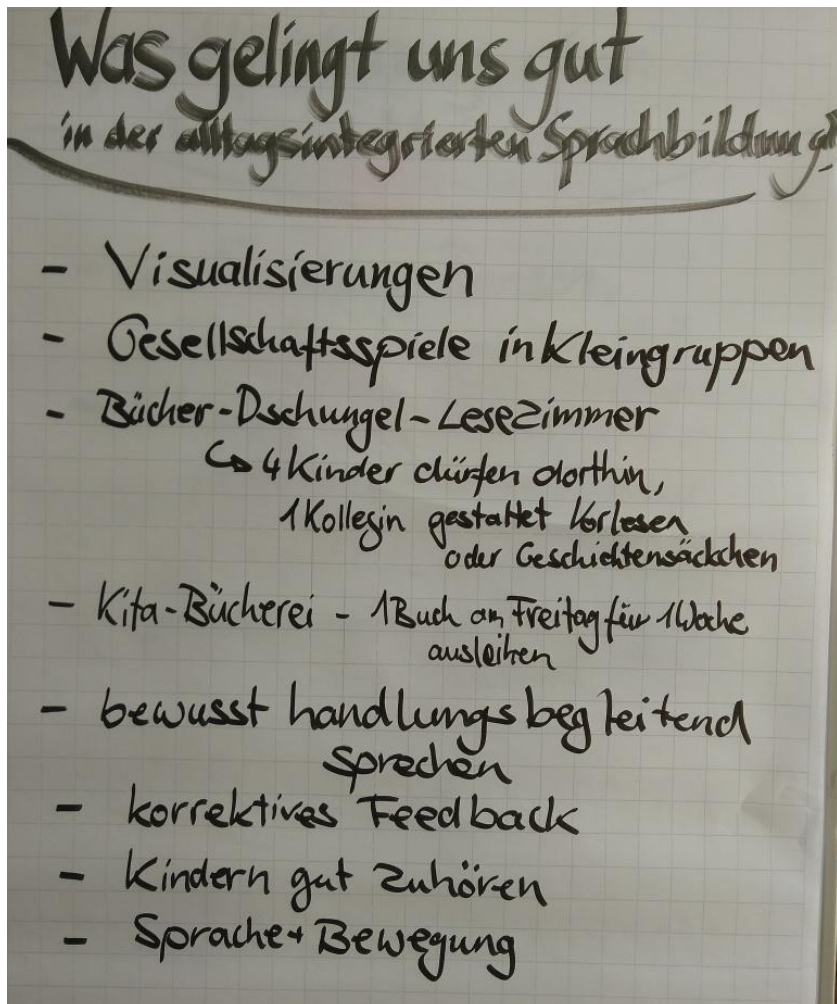 Was gelingt uns gut
in der alltagsintegrierten Sprachbildung?
- Visualisierungen
- Gesellschaftsspiele in Kleingruppen
- Bücher-Dschungel-Lesezimmer
↳ 4 Kinder dürfen dorthin,
1 Kollegin gestaltet Vorlesen
oder Geschichtensäckchen
- Kita-Bücherei - 1 Buch am Freitag für 1 Woche
ausleihen
- bewusst handlungsbegleitend
sprechen
- korrektives Feedback
- Kindern gut zuhören
- Sprache + Bewegung